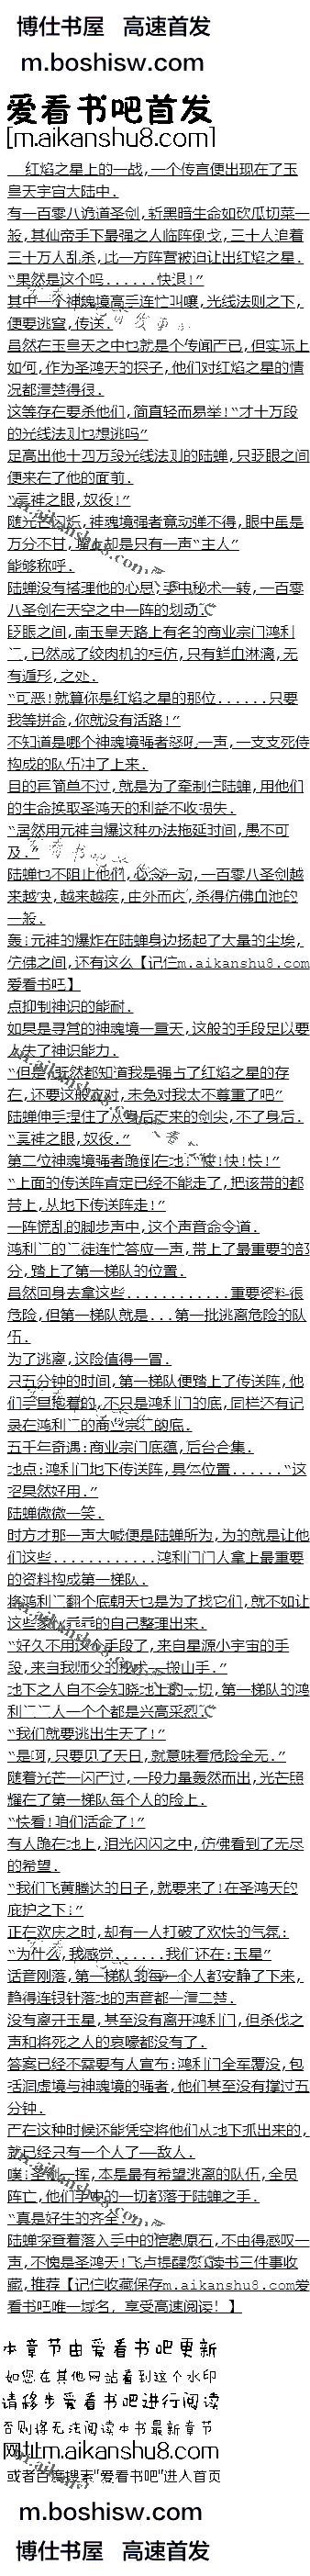 博仕书屋 高速首发
m.boshisw.com
爱看书吧首发
[m.aikanshu8.com]
红焰之星上的一战,一个传言便出现在了玉
皇天宇宙大陆中.
有一百零八诡道圣剑,斩黑暗生命如砍瓜切菜一
般,其仙帝手下最强之人临阵倒戈,三十人追着
三十万人乱杀,此一方阵营被迫让出红焰之星.
“果然是这个吗......快退!”
其中一个神魂境高手连忙叫嚷,光线法则之下,
便要逃窜,传送.
虽然在玉皇天之中也就是个传闻而已,但实际上
如何,作为圣鸿天的探子,他们对红焰之星的情
况都清楚得很.
这等存在要杀他们,简直轻而易举!“才十万段
的光线法则也想逃吗”
足高出他十四万段光线法则的陆蝉,只眨眼之间
便来在了他的面前.
神之眼,奴役!”
随光芒闪烁,神魂境强者竟动弹不得,眼中虽是
万分不甘,嘴上却是只有一声“主人”
能够称呼.
陆蝉没有搭理他的心思,手中秘术一转,一百零
八圣剑在天空之中一阵的划动.
眨眼之间,南玉皇天路上有名的商业宗门鸿利
门,已然成了绞肉机的模仿,只有鲜血淋漓,无
有遁形,之处.
“可恶!就算你是红焰之星的那位......只要
我等拼命,你就没有活路!”
不知道是哪个神魂境强者怒吼一声,一支支死侍
构成的队伍冲了上来.
目的再简单不过,就是为了牵制住陆蝉,用他们
的生命换取圣鸿天的利益不收损失.
“居然用元神自爆这种办法拖延时间,愚不可
及.”
陆蝉也不阻止他们,心念一动,一百零八圣剑越
来越快,越来越疾,由外而内,杀得仿佛血池的
一般.
轰!元神的爆炸在陆蝉身边扬起了大量的尘埃,
仿佛之间,还有这么【记住m.aikanshu8.com
爱看书吧】
点抑制神识的能耐.
如果是寻常的神魂境一重天,这般的手段足以要
人失了神识能力.
“但是,既然都知道我是强占了红焰之星的存
在,还要这般应对,未免对我太不尊重了吧”
陆蝉伸手捏住了从身后而来的剑尖,不了身后.
神之眼,奴役.”
第二位神魂境强者跪倒在地:“快!快!快!”
“上面的传送阵肯定已经不能走了,把该带的都
带上,从地下传送阵走!”
一阵慌乱的脚步声中,这个声音命令道.
鸿利门的门徒连忙答应一声,带上了最重要的部
分,踏上了第一梯队的位置.
虽然回身去拿这些............重要资料很
危险,但第一梯队就是...第一批逃离危险的队
伍.
为了逃离,这险值得一冒.
只五分钟的时间,第一梯队便踏上了传送阵,他
们手里抱着的,不只是鸿利门的底,同样还有记
录在鸿利门的商业宗门的底.
五千年奇遇:商业宗门底蕴,后台合集.
地点:鸿利门地下传送阵,具体位置......“这
招果然好用.”
陆蝉微微一笑.
时方才那一声大喊便是陆蝉所为,为的就是让他
们这些............鸿利门门人拿上最重要
的资料构成第一梯队.
将鸿利门翻个底朝天也是为了找它们,就不如让
这些家伙乖乖的自己整理出来.
“好久不用这个手段了,来自星源小宇宙的手
段,来自我师父的秘术——搬山手.”
地下之人自不会知晓地上的一切,第一梯队的鸿
利门门人一个个都是兴高采烈.
“我们就要逃出生天了!”
“是啊,只要见了天日,就意味着危险全无.”
随着光芒一闪而过,一段力量轰然而出,光芒照
耀在了第一梯队每个人的脸上.
“快看!咱们活命了!”
有人跪在地上,泪光闪闪之中,仿佛看到了无尽
的希望.
“我们飞黄腾达的日子,就要来了!在圣鸿天的
庇护之下!”
正在欢庆之时,却有一人打破了欢快的气氛:
“为什么,我感觉......我们还在:玉星”
话音刚落,第一梯队的每一个人都安静了下来,
静得连银针落地的声音都一清二楚.
没有离开玉星,甚至没有离开鸿利门,但杀伐之
声和将死之人的哀嚎都没有了.
答案已经不需要有人宣布:鸿利门全军覆没,包
括洞虚境与神魂境的强者,他们甚至没有撑过五
分钟.
而在这种时候还能凭空将他们从地下抓出来的,
就已经只有一个人了——敌人.
噗!圣剑一挥,本是最有希望逃离的队伍,全员
阵亡,他们手中的一切都落于陆蝉之手.
“真是好生的齐全.”
陆蝉探查着落入手中的信息原石,不由得感叹一
声,不愧是圣鸿天!飞卢提醒您:读书三件事收
藏,推荐【记住收藏保存m.aikanshu8.com爱
看书吧唯一域名，享受高速阅读！】
本章节由爱看书吧更新
如您在其他网站看到这个水印
请移步爱看书吧进行阅读
否则将无法阅读本书最新章节
网址m.aikanshu8.com
或者百度搜索"爱看书吧"进入首页
m.boshisw.com
博仕书屋 高速首发